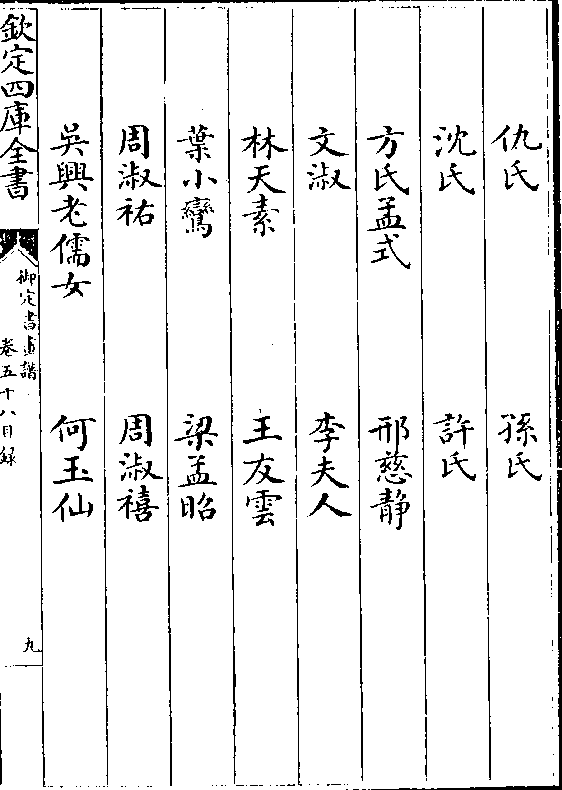 仇氏　孫氏
沈氏　許氏
方氏孟式　邢慈静
文淑　李夫人
林天素　王友雲
葉小鸞　梁孟昭
周淑祐　周淑禧
吳興老儒女　何玉仙
欽定四庫全書
御定書畫譜
卷五十八目録
九